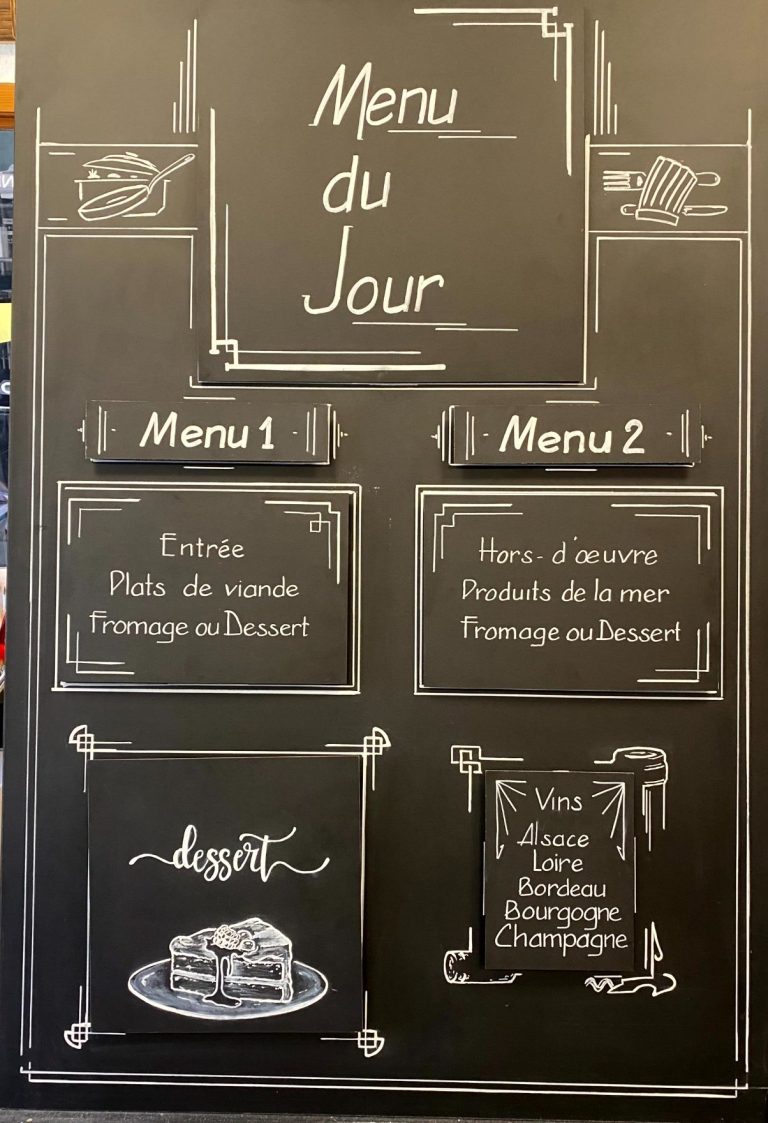 Menu
du
Jour
Menu 1
Entrée
Plats de viande
Fromage ou Dessert
Menu 2
Hors-d'œuvre
Produits de la mer
Fromage ou Dessert
dessert
Vins
Alsace
Loire
Bordeau
Bourgogne
Champagne